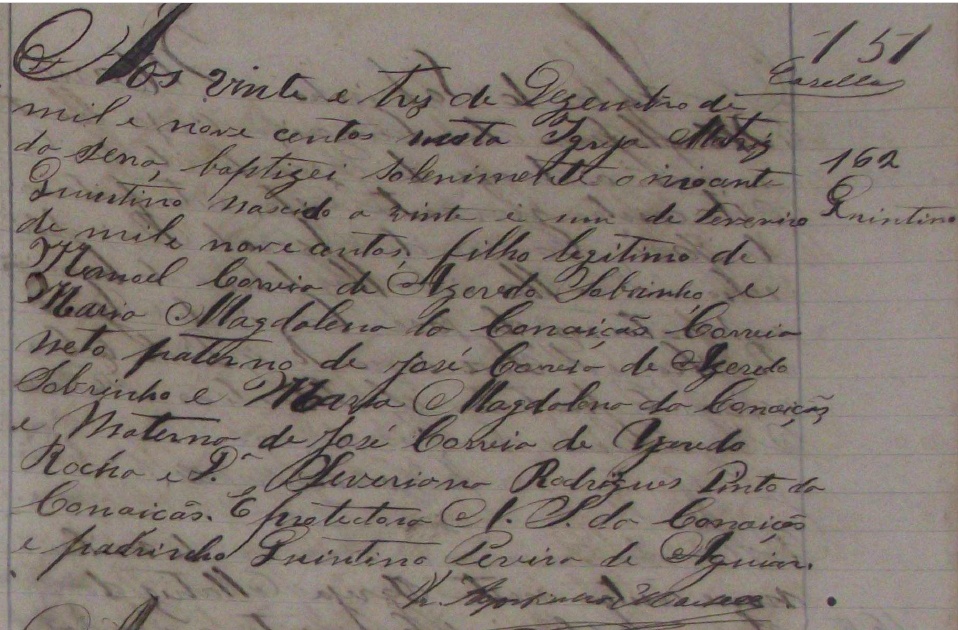 Aos vinte e tres de Dezembro de
mil e nove centos nesta Igreja Matriz
da Serra, baptizei solenimente o inocente
Quintino nascido a vinte e um de Fevereiro
de mil e nove centos, filho legitimo de
Manoel Correia de Azeredo Sobrinho e
Maria Magdalena da Conaição Correia
Neto paterno de José Correia de Azeredo
Sobrinho e Maria Magdalena da Conaição
e Materno de José Correia de Azeredo
Rocha e D.ª Severiana Rodrigues Pinto da
Conaicão. É protectora N. S. da Conaição
e padrinho Quintino Pereira de Aguiar.
151
162
Quintino